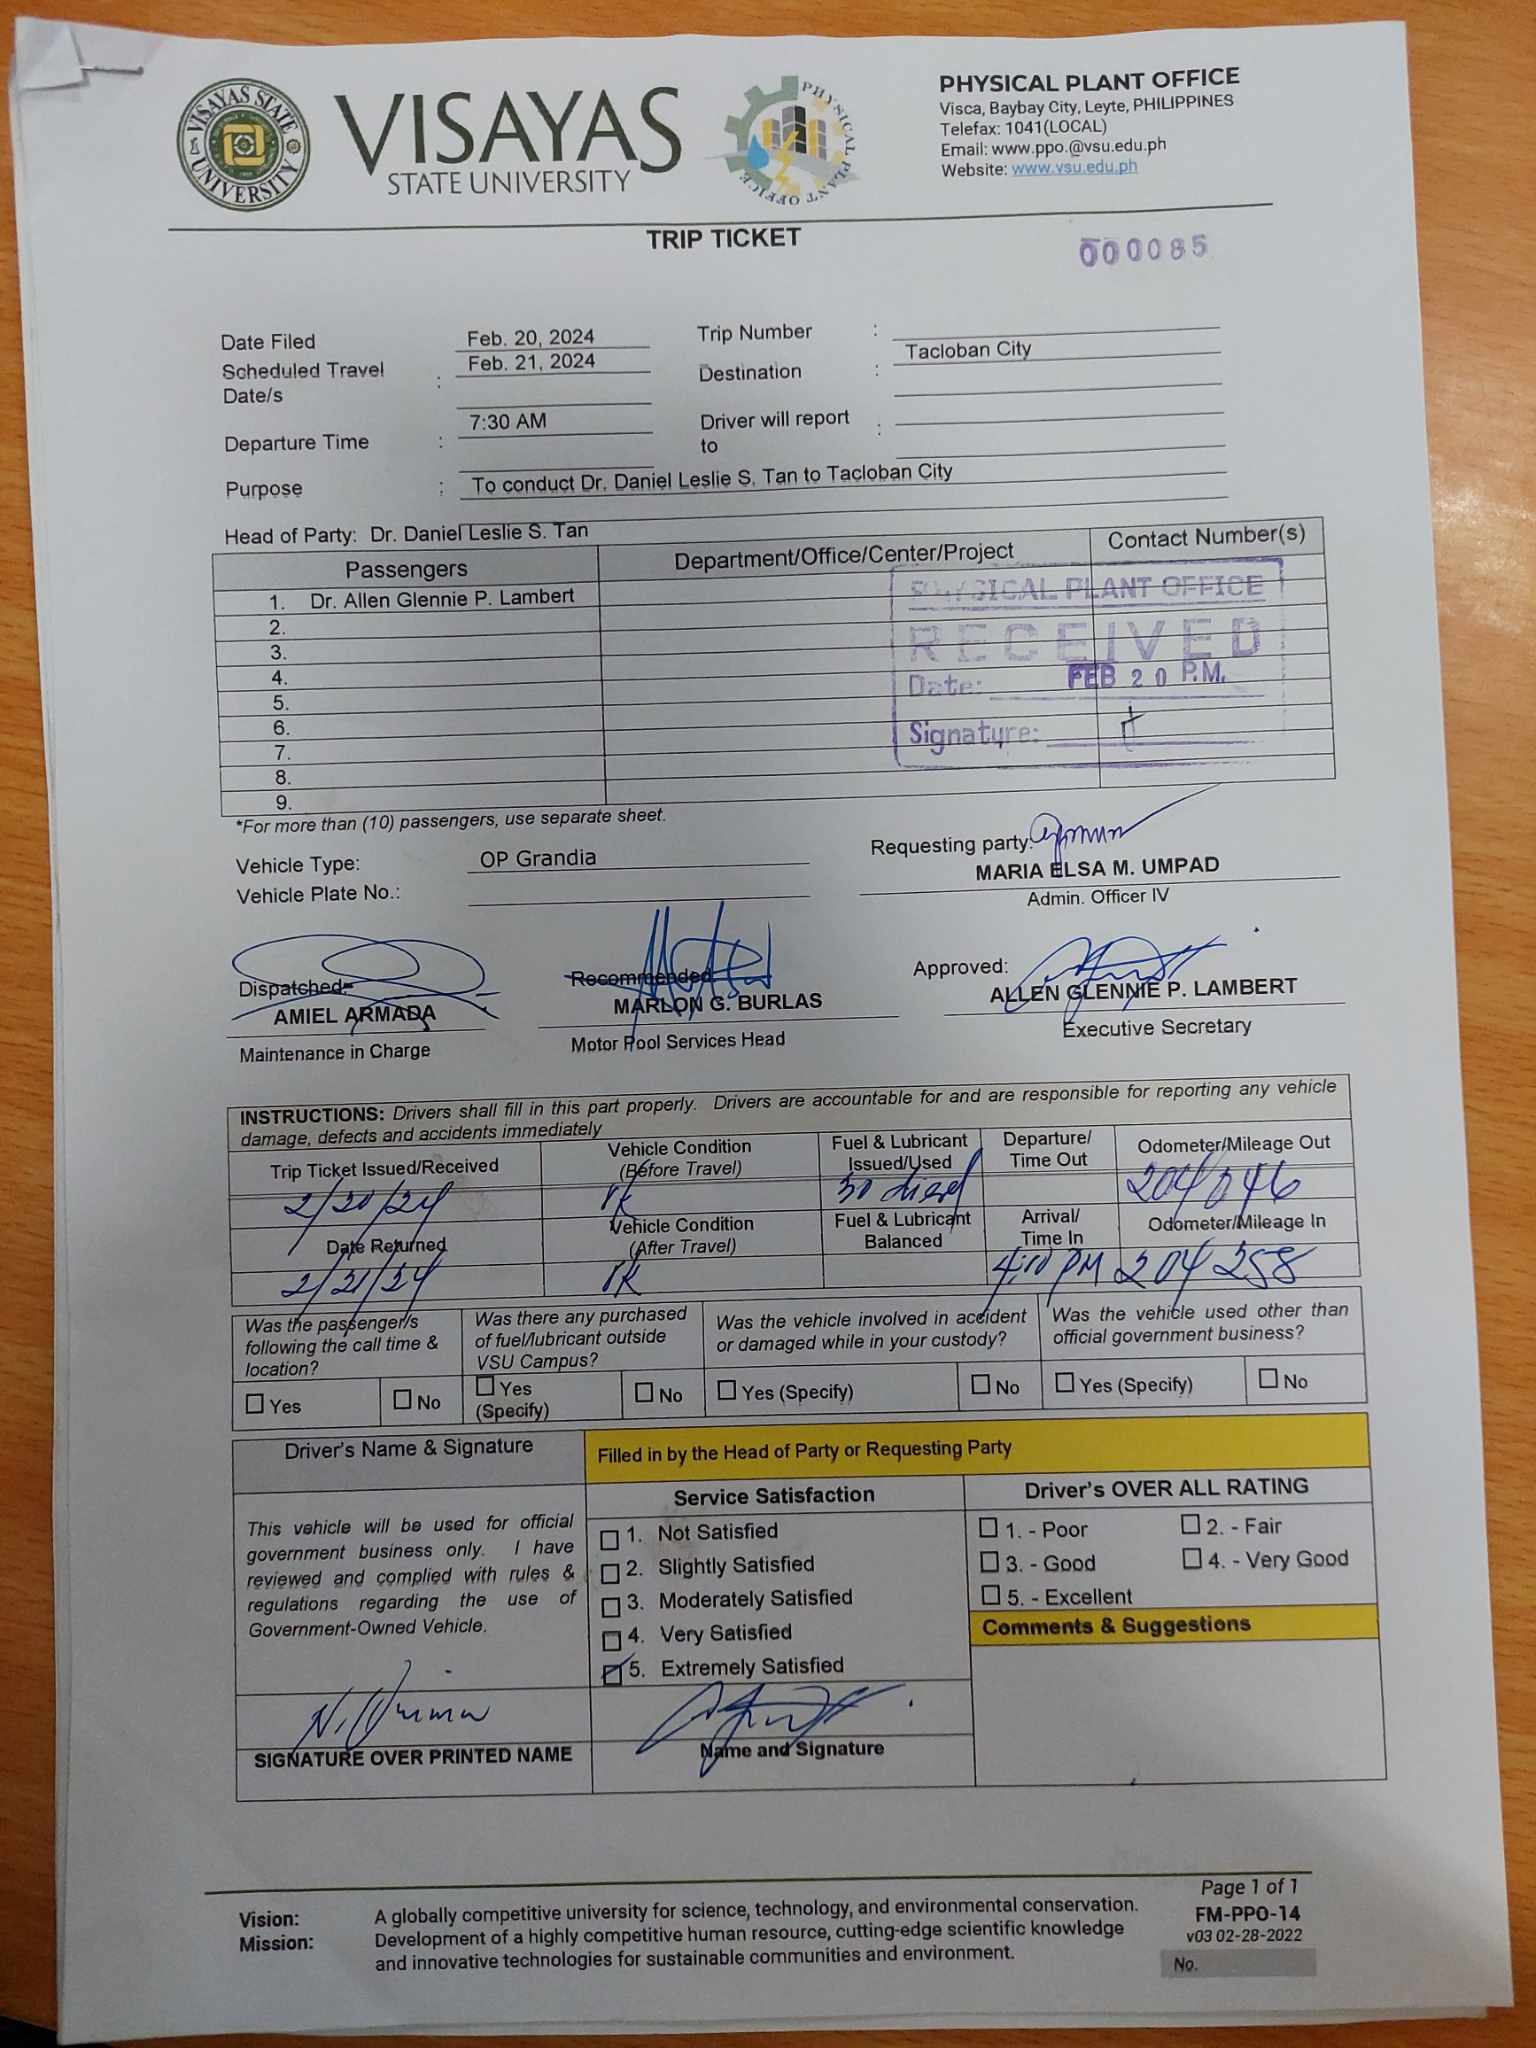 VISAYAS STATE UNIVERSITY
VISAYAS
STATE UNIVERSITY
PHYSICAL PLANT OFFICE
PHYSICAL PLANT OFFICE
Visca, Baybay City, Leyte, PHILIPPINES
Telefax: 1041(LOCAL)
Email: www.ppo.@vsu.edu.ph
Website: www.vsu.edu.ph
TRIP TICKET
000085
Date Filed Feb. 20, 2024 Trip Number :
Scheduled Travel Date/s : Feb. 21, 2024 Destination : Tacloban City
Departure Time : 7:30 AM Driver will report to :
Purpose : To conduct Dr. Daniel Leslie S. Tan to Tacloban City
Head of Party: Dr. Daniel Leslie S. Tan
Passengers Department/Office/Center/Project Contact Number(s)
1. Dr. Allen Glennie P. Lambert
2.
3.
4.
5.
6.
7.
8.
9.
PHYSICAL PLANT OFFICE
RECEIVED
Date: FEB 20 P.M.
Signature:
*For more than (10) passengers, use separate sheet.
Vehicle Type: OP Grandia
Vehicle Plate No.:
Requesting party:
MARIA ELSA M. UMPAD
Admin. Officer IV
Dispatched: Recommended: Approved:
AMIEL ARMADA MARLON G. BURLAS ALLEN GLENNIE P. LAMBERT
Maintenance in Charge Motor Pool Services Head Executive Secretary
INSTRUCTIONS: Drivers shall fill in this part properly. Drivers are accountable for and are responsible for reporting any vehicle
damage, defects and accidents immediately
Trip Ticket Issued/Received Vehicle Condition (Before Travel) Fuel & Lubricant Issued/Used Departure/ Time Out Odometer/Mileage Out
2/20/24 50 diesel 204046
Date Returned Vehicle Condition (After Travel) Fuel & Lubricant Balanced Arrival/ Time In Odometer/Mileage In
2/21/24 4:10 PM 204258
Was the passenger/s following the call time & location?
Was there any purchased of fuel/lubricant outside VSU Campus?
Was the vehicle involved in accident or damaged while in your custody?
Was the vehicle used other than official government business?
Yes No Yes (Specify) No Yes (Specify) No Yes (Specify) No
Driver's Name & Signature Filled in by the Head of Party or Requesting Party
Service Satisfaction Driver's OVER ALL RATING
This vehicle will be used for official
government business only. I have
reviewed and complied with rules &
regulations regarding the use of
Government-Owned Vehicle.
1. Not Satisfied
2. Slightly Satisfied
3. Moderately Satisfied
4. Very Satisfied
5. Extremely Satisfied
1. - Poor 2. - Fair
3. - Good 4. - Very Good
5. - Excellent
Comments & Suggestions
SIGNATURE OVER PRINTED NAME Name and Signature
Vision: A globally competitive university for science, technology, and environmental conservation.
Mission: Development of a highly competitive human resource, cutting-edge scientific knowledge
and innovative technologies for sustainable communities and environment.
Page 1 of 1
FM-PPO-14
v03 02-28-2022
No.